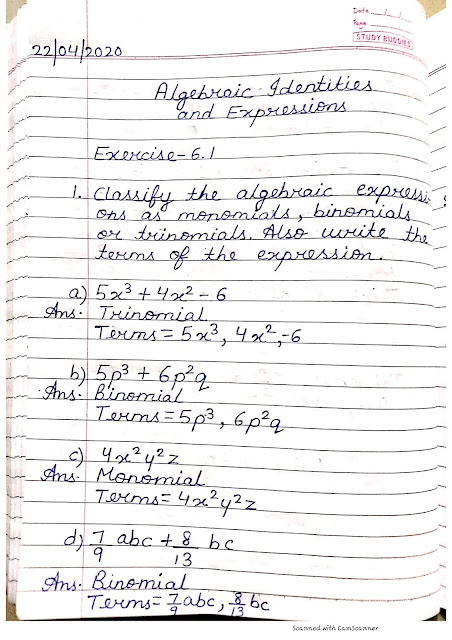 Date
Page
STUDY BUDDIES
22/04/2020
Algebraic Identities
and Expressions
Exercise-6.1
1. Classify the algebraic expressi
ons as monomials, binomials
or trinomials. Also write the
terms of the expression.
a) 5x³ + 4x² - 6
Ans. Trinomial
Terms = 5x³, 4x², -6
b) 5p³ + 6p²q
Ans. Binomial
Terms = 5p³, 6p²q
c) 4x²y²z
Ans. Monomial
Terms = 4x²y²z
d) 7/9 abc + 8/13 bc
Ans. Binomial
Terms = 7/9 abc, 8/13 bc
Scanned with CamScanner